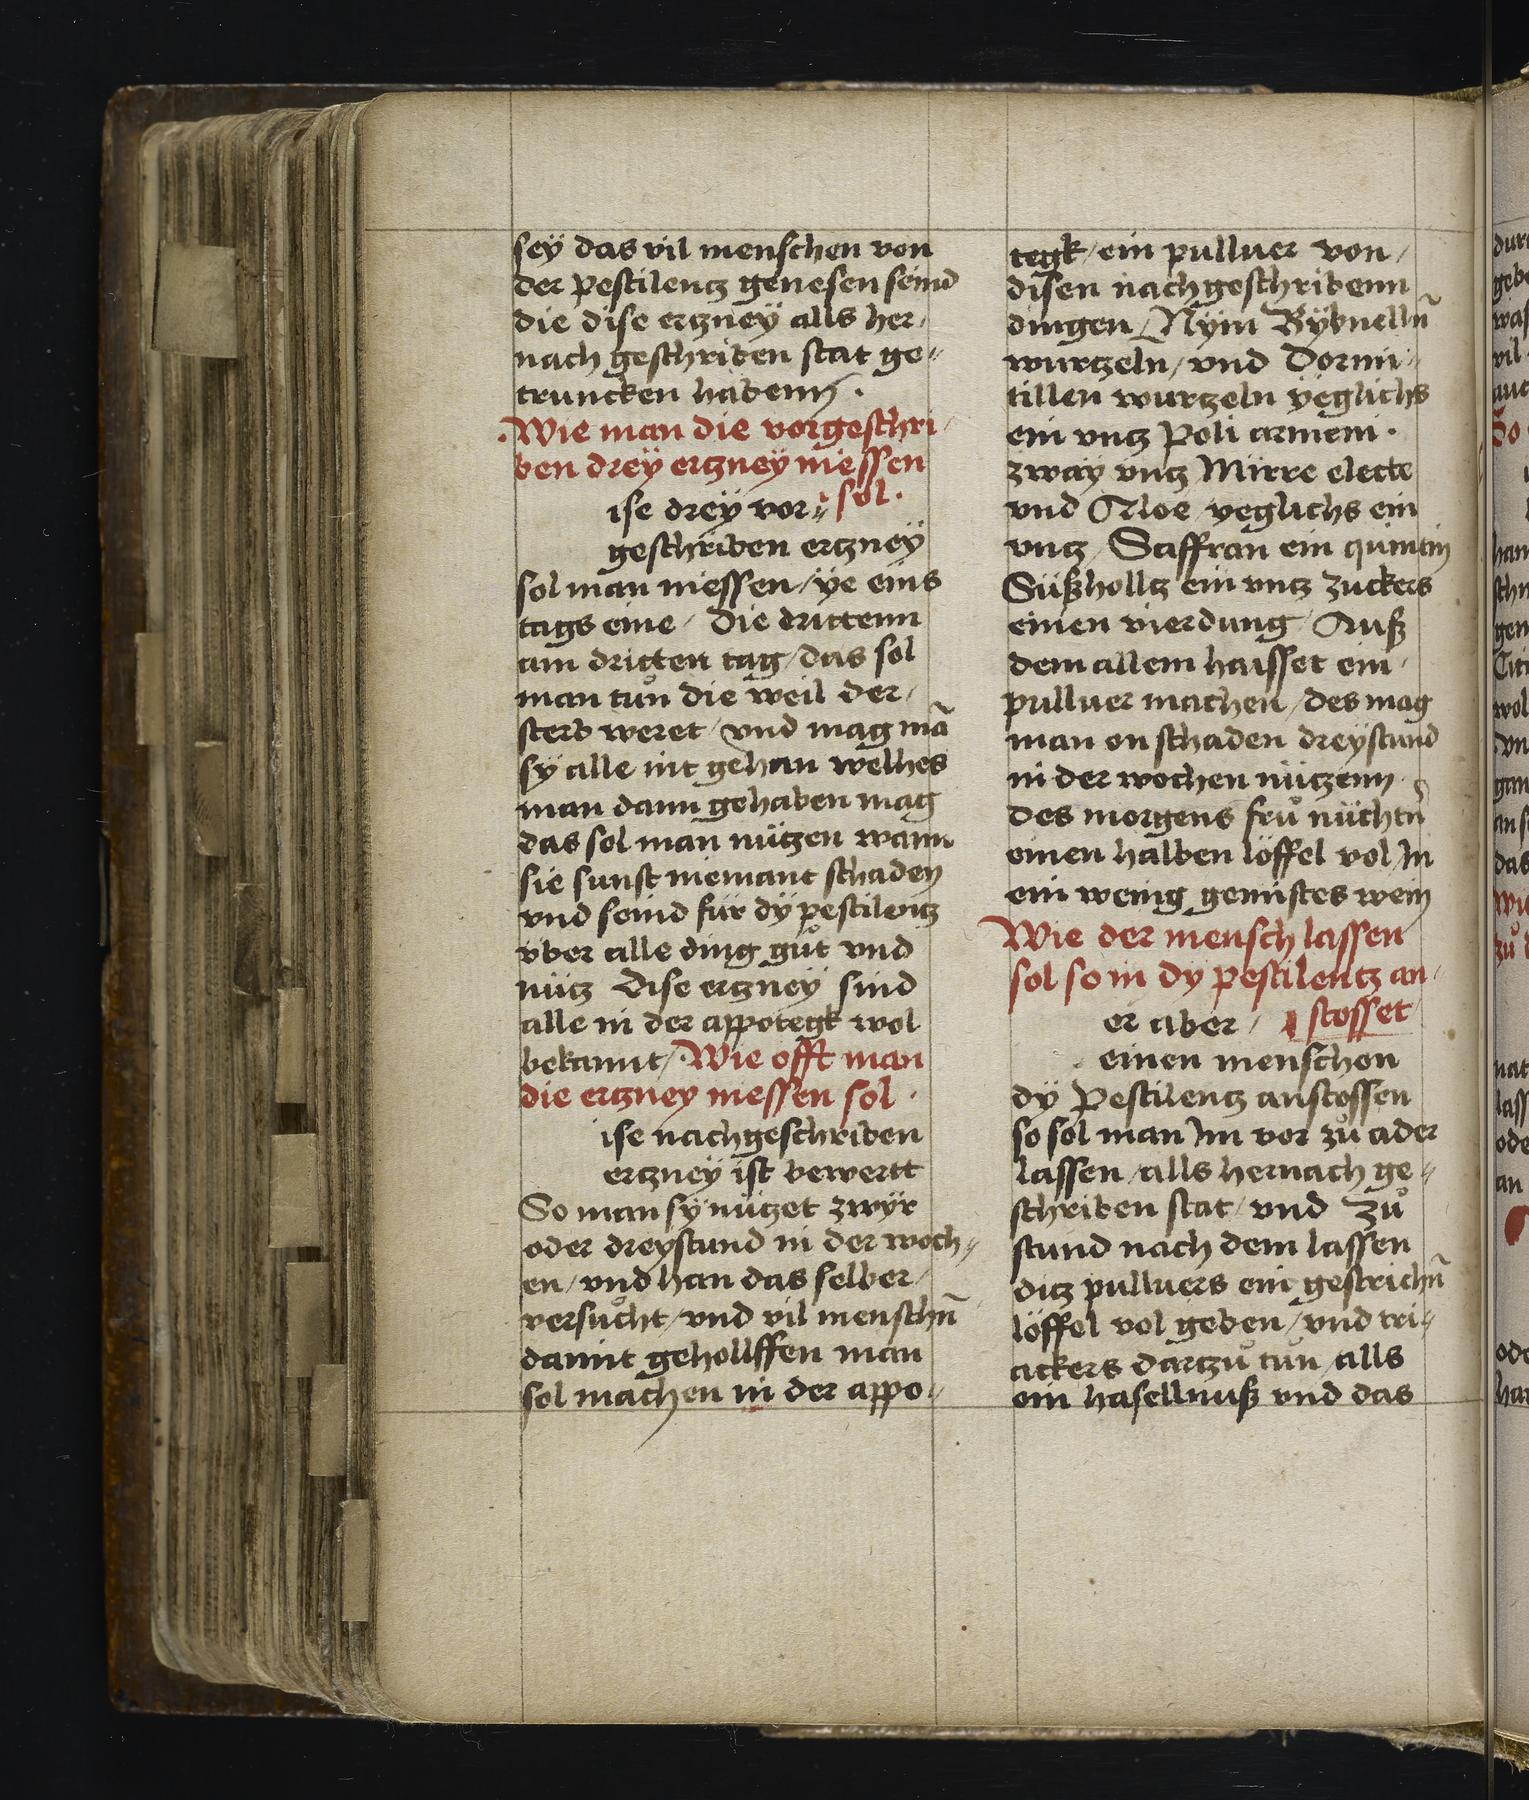 sey̋ das vil menschen von
der pestilentz genesen seind
die dise ertzney̋ alls her/
nach geschriben stat ge〃
truncken habenn .
.Wie man die vorgeschri/
ben drey̋ ertzney̋ niessen
sol.
ise drey̋ vor〃
geschriben ertzney̋
sol man niessen / y̋e eins
tags eine / die drittenn
am dritten tag / das sol
man tuͦn die weil der /
sterb weret / vnd mag mā
sy̋ alle nit gehan welhes
man dann gehaben mag
das sol man nützen wann
sie sunst niemant schaden
vnd seind für dy̋ pestilentz
über alle ding guͦt vnd
nütz dise ertzney̋ sind
alle in der appotegk wol
bekannt / .Wie offt man
die ertzney niessen sol .
ise nachgeschriben
ertzney̋ ist bewertt
So man sy̋ nützet zwy̋r
oder drey̋stund in der woch〃
en / vnd han das selber /
versuͦcht / vnd vil menschn̄
damit gehollffen man
sol machen in der appo〃
tegk / ein pulluer von /
disen nachgeschribenn
dingen / Ny̋m By̋bnelln̄
wurtzeln / vnd Dormi〃
tillen wurtzeln y̋eglichs
ein vntz Poli armeni .
zway̋ vntz Mirre electe
vnd Aloe yeglichs ein
vntz / Saffran ein quintin
Süßholltz ein vntz zuckers
einen vierdung / Auß
dem allem haisset ein /
pulluer machen / des mag
man on schaden drey̋stund
in der wochen nützenn .
des morgens fruͦ nüchtn̄
einen halben löffel vol / In
ein wenig gemistes wein
Wie der mensch lassen
sol so in dy pestilentz an /
stosset
er aber /
einen menschen
dy̋ Pestilentz anstossen
so sol man Im vor zuͦ ader
lassen / alls hernach ge〃
schriben stat / vnd zuͦ
stund nach dem lassen
ditz pulluers ein gestrichn̄
löffel vol geben / vnd tri〃
ackers dartzuͦ tuͦn / alls
ein hasellnuß vnd das